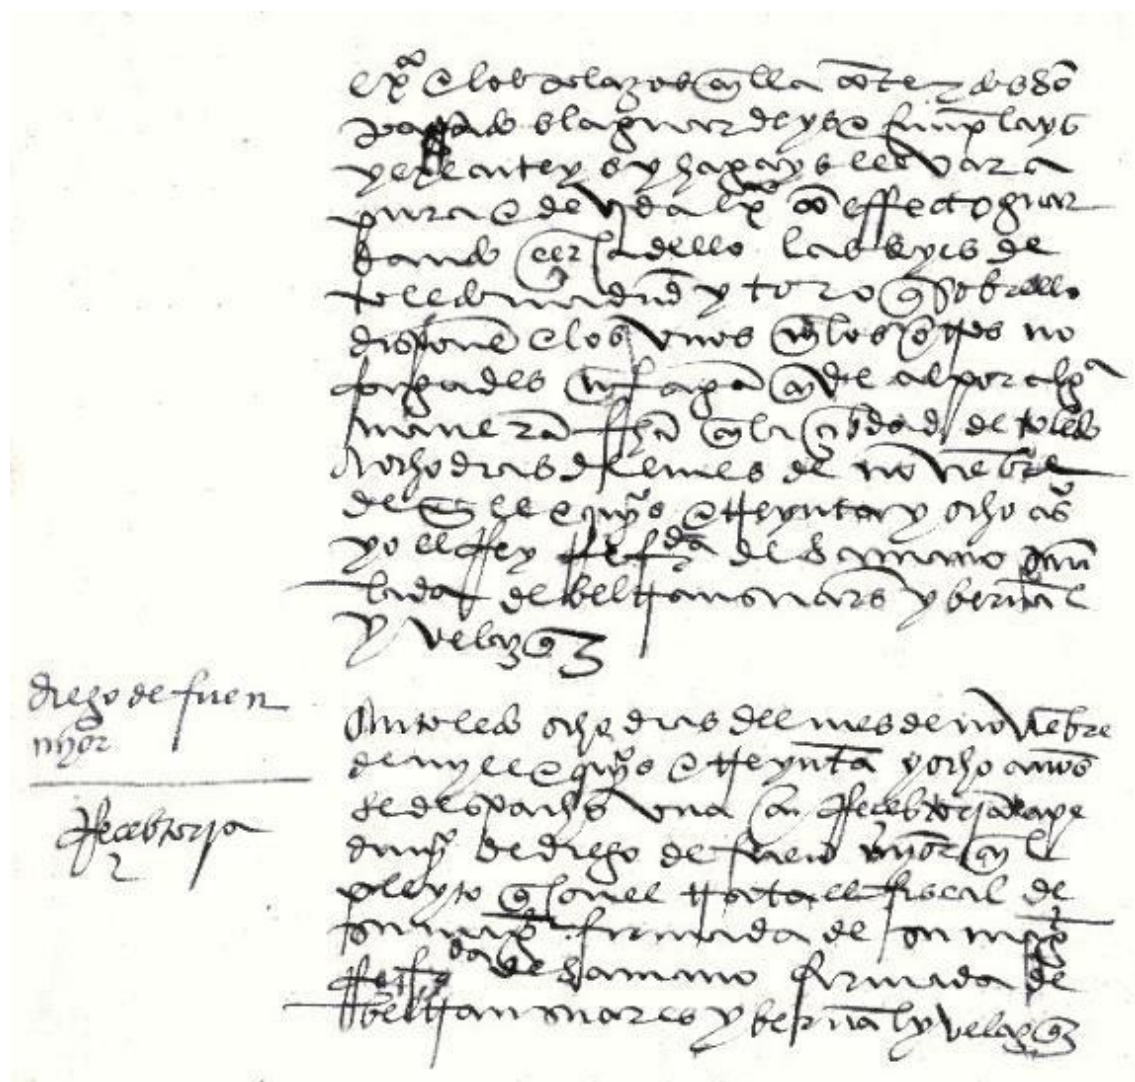 e los plazos en lla contenydos son
pasados la guardeys e cunplays
y executeys y hagays llevar a
pura e devyda exon con effecto guar
dando cerca dello las leyes de
toledo madrid y toro que sobrello
disponen e los unos ny los otros no
fagades ny fagan ende al por alga
manera fha en la cibdad de toledo
a ocho dias del mes de novienbre
de mill e quyos e treynta y ocho as
yo el rrey rrefrendada de samano sena
lada de beltran suars y bernal
y velazqz
diego de fuen
mayor
rrecebtorja
En toledo ocho dias del mes de novienbre
de myll e quyos e treynta y ocho anos
se despacho una carta rrecebtorja a pe
dimyo de diego de fuen mayor en el
pleyto que con el trata el fiscal de
su magt firmada de su magt
rrefrendada de samano firmada de
beltran suares y bernal y velazqz